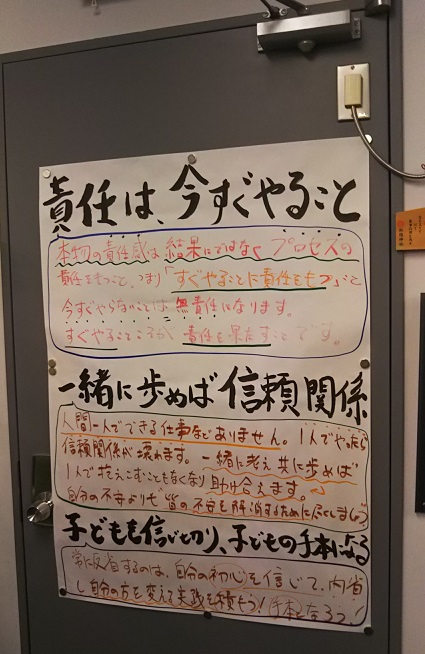 責任は、今すぐやること
本物の責任感は結果にではなくプロセスの
責任をもつこと、つまり「すぐやることに責任をもつ」こと
今すぐやらないことは無責任になります。
すぐやるところが責任を果たすことです。
一緒に歩めば信頼関係
人間一人でできる仕事などありません。1人でやったら
信頼関係が壊れます。一緒に考え共に歩めば
1人で抱えこむこともなくなり助け合えます。
自分の不安よりも皆の不安を解消するために尽くしましょう
子どもを信じきり、子どもの手本になる
常に反省するのは、自分の初心を信じて、内省
し自分の方を変える実践を積もう!手本となろう!